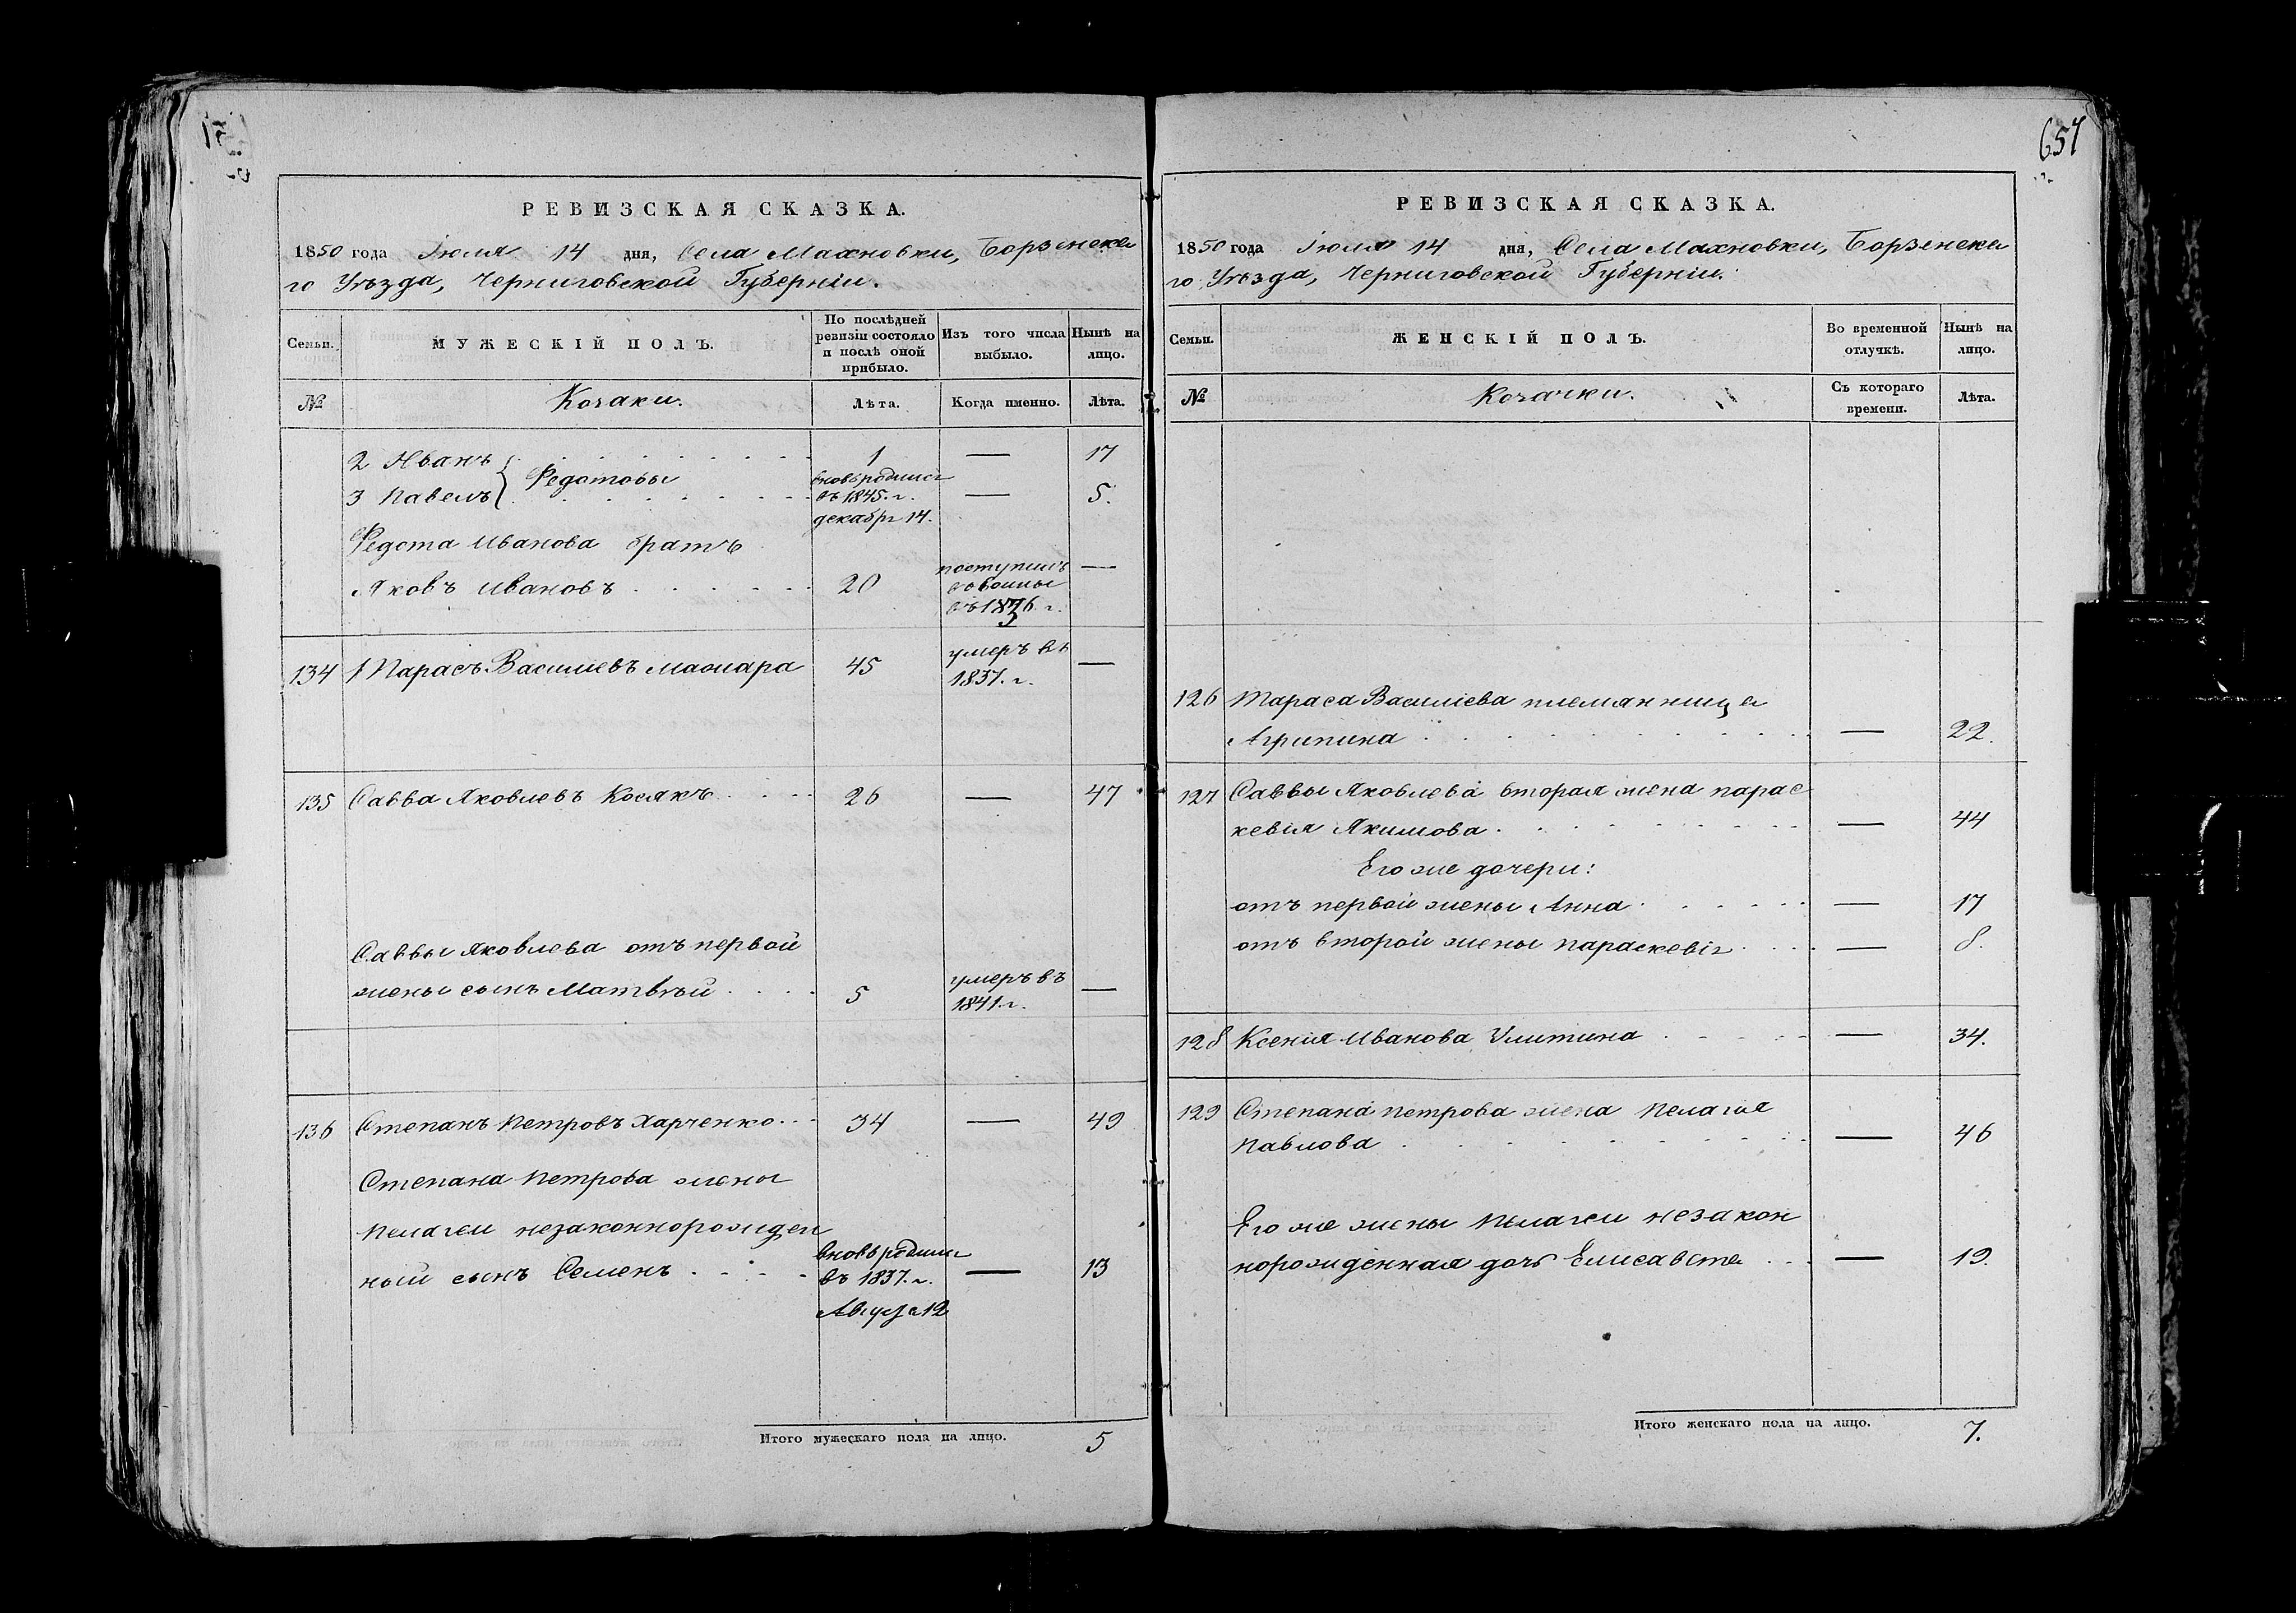 657
РЕВИЗСКАЯ СКАЗКА.
1850 года Іюля 14 дня, Села Махновки, Борзенска
го Уѣзда, Черниговской Губерніи.
Семьи.
МУЖЕСКІЙ ПОЛЪ.
По послѣдней ревизіи состояло и послѣ оной прибыло.
Изъ того числа выбыло.
Нынѣ на лицо.
№
Козаки.
Лѣта.
Когда именно.
Лѣта.
2 Иванъ 1 — 17
3 Павелъ } Федотовы вновь родился въ 1845. г. декабря 14. — 5.
Федота Иванова братъ
Яковъ Ивановъ 20 поступилъ въ 1836 г. —
134 1 Тарасъ Василіевъ 45 умеръ въ 1837. г. —
135 Савва Яковлевъ Косякъ 26 — 47
Саввы Яковлева отъ первой
жены сынъ Матвѣй 5 умеръ въ 1841. г. —
136 Степанъ Петровъ Харченко 34 — 49
Степана Петрова жены
Пелагеи незаконнорожден
ный сынъ Семенъ вновь родился въ 1837. г. Августа 12 — 13
Итого мужескаго пола на лицо. 5
РЕВИЗСКАЯ СКАЗКА.
1850 года Іюля 14 дня, Села Махновки, Борзенска
го Уѣзда, Черниговской Губерніи.
Семьи.
ЖЕНСКІЙ ПОЛЪ.
Во временной отлучкѣ.
Нынѣ на лицо.
№
Козачки.
Съ котораго времени.
Лѣта.
126 Тараса Василіева племянница
Агрипина — 22.
127 Саввы Яковлева вторая жена Парас
кевія Якимова — 44
Его же дочери:
отъ первой жены Анна — 17
отъ второй жены Параскевія — 8.
128 Ксенія Иванова Улитина — 34.
129 Степана Петрова жена Пелагея
Павлова — 46
Его же жены Пелагеи незакон
норожденная дочь Елисавета — 19.
Итого женскаго пола на лицо. 7.